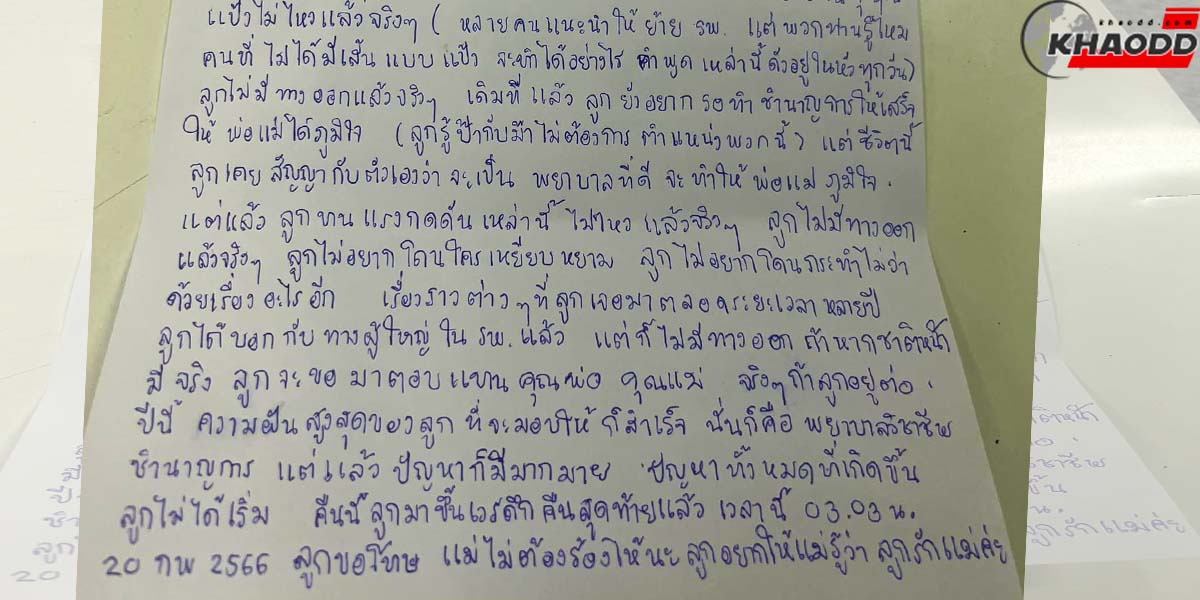 khaodd.com
KHAODD
แป้งไม่ไหวแล้วจริงๆ ( หลายคนแนะนำให้ ย้าย รพ. แต่ พวกท่านรู้ไหม
คนที่ ไม่ได้มีเส้น แบบ แป้ง จะทำได้อย่างไร คำพูด เหล่านี้ ดังอยู่ในหัวทุกวัน)
ลูกไม่มีทางออกแล้วจริงๆ เดิมที แล้ว ลูก ยังอยาก รอทำ ชำนาญการให้เสร็จ
ให้ พ่อแม่ได้ภูมิใจ (ลูกรู้ป๊ากับม๊าไม่ต้องการ ตำแหน่งพวกนี้) แต่ ชีวิตนี้
ลูกเคย สัญญา กับ ตัวเองว่า จะเป็น พยาบาลที่ดี จะทำให้ พ่อแม่ ภูมิใจ.
แต่แล้ว ลูก ทนแรงกดดัน เหล่านี้ ไม่ไหว แล้วจริงๆ ลูกไม่มีทางออก
แล้วจริงๆ ลูกไม่อยากโดนใครเหยียบหยาม ลูกไม่อยากโดนกระทำไม่ว่า
ด้วยเรื่องอะไรอีก เรื่องราวต่างๆที่ลูกเจอมาตลอดระยะเวลาหลายปี
ลูกได้บอก กับ ทางผู้ใหญ่ ใน รพ. แล้ว แต่ก็ไม่มีทางออก ถ้าหากชาติหน้า
มีจริง ลูกจะขอ มาตอบแทน คุณพ่อ คุณแม่ จริงๆถ้าลูกอยู่ต่อ.
ปีนี้ ความฝันสูงสุดของลูก ที่จะมอบให้ ก็สำเร็จ นั่นก็คือ พยาบาลวิชาชีพ
ชำนาญการ แต่แล้ว ปัญหาก็มีมากมาย ปัญหาทั้งหมดที่เกิดขึ้น
ลูกไม่ได้เริ่ม คืนนี้ลูกมาขึ้นเวรดึกคืนสุดท้ายแล้ว เวลานี้ 03.03 น.
20 กพ 2566 ลูกขอโทษ แม่ไม่ต้องร้องไห้นะ ลูกอยากให้แม่รู้ว่า ลูกรักแม่ค่ะ